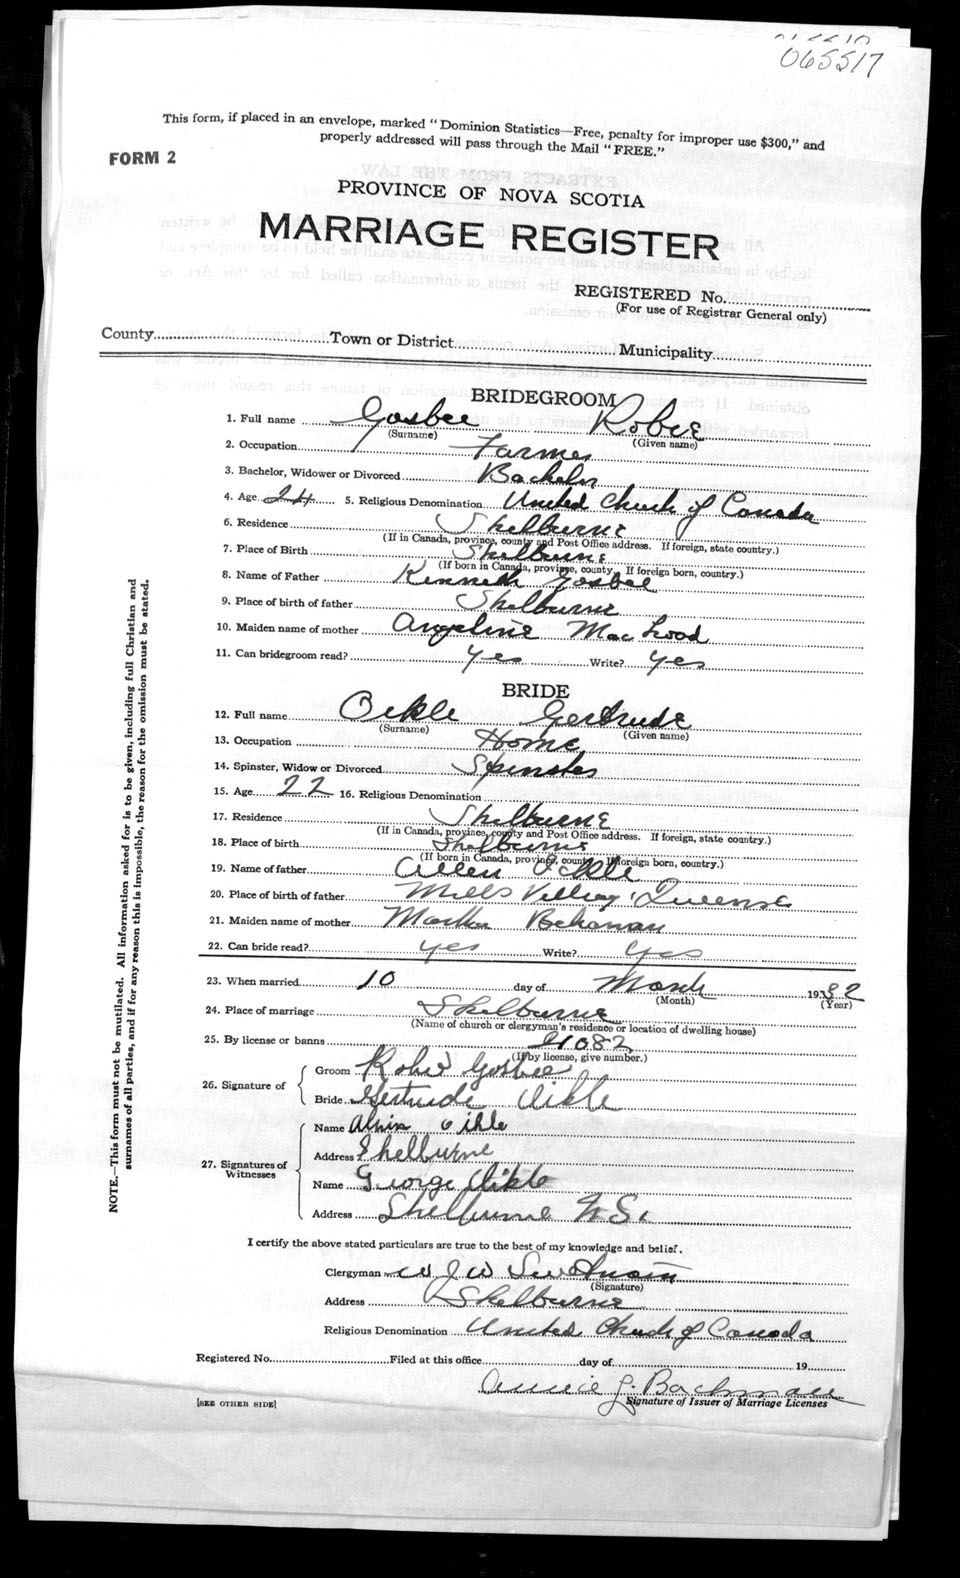 065517
This form, if placed in an envelope, marked "Dominion Statistics—Free, penalty for improper use $300," and
properly addressed will pass through the Mail "FREE."
FORM 2
PROVINCE OF NOVA SCOTIA
MARRIAGE REGISTER
REGISTERED No.
(For use of Registrar General only)
County Town or District Municipality
BRIDEGROOM
1. Full name Gosbee Robie
(Surname) (Given name)
2. Occupation Farmer
3. Bachelor, Widower or Divorced Bachelor
4. Age 24 5. Religious Denomination United Church of Canada
6. Residence Shelburne
(If in Canada, province, county and Post Office address. If foreign, state country.)
7. Place of Birth Shelburne
(If born in Canada, province, county. If foreign born, country.)
8. Name of Father Kenneth Gosbee
9. Place of birth of father Shelburne
10. Maiden name of mother Angeline Mac
11. Can bridegroom read? yes Write? yes
BRIDE
12. Full name Oikle Gertrude
(Surname) (Given name)
13. Occupation Home
14. Spinster, Widow or Divorced Spinster
15. Age 22 16. Religious Denomination
17. Residence Shelburne
(If in Canada, province, county and Post Office address. If foreign, state country.)
18. Place of birth Shelburne
(If born in Canada, province, county. If foreign born, country.)
19. Name of father Allen Oikle
20. Place of birth of father Mills Village, Queens
21. Maiden name of mother
22. Can bride read? yes Write? yes
23. When married 10 day of March 1932
(Month) (Year)
24. Place of marriage Shelburne
(Name of church or clergyman's residence or location of dwelling house)
25. By license or banns
(If by license, give number.)
26. Signature of
Groom Robie Gosbee
Bride Gertrude Oikle
27. Signatures of Witnesses
Name Oikle
Address Shelburne
Name George Oikle
Address Shelburne N.S.
I certify the above stated particulars are true to the best of my knowledge and belief.
Clergyman W J W
(Signature)
Address Shelburne
Religious Denomination United Church of Canada
Registered No. Filed at this office day of 19
Annie L. Bachman
Signature of Issuer of Marriage Licenses
[SEE OTHER SIDE]
NOTE.—This form must not be mutilated. All information asked for is to be given, including full Christian and
surnames of all parties, and if for any reason this is impossible, the reason for the omission must be stated.